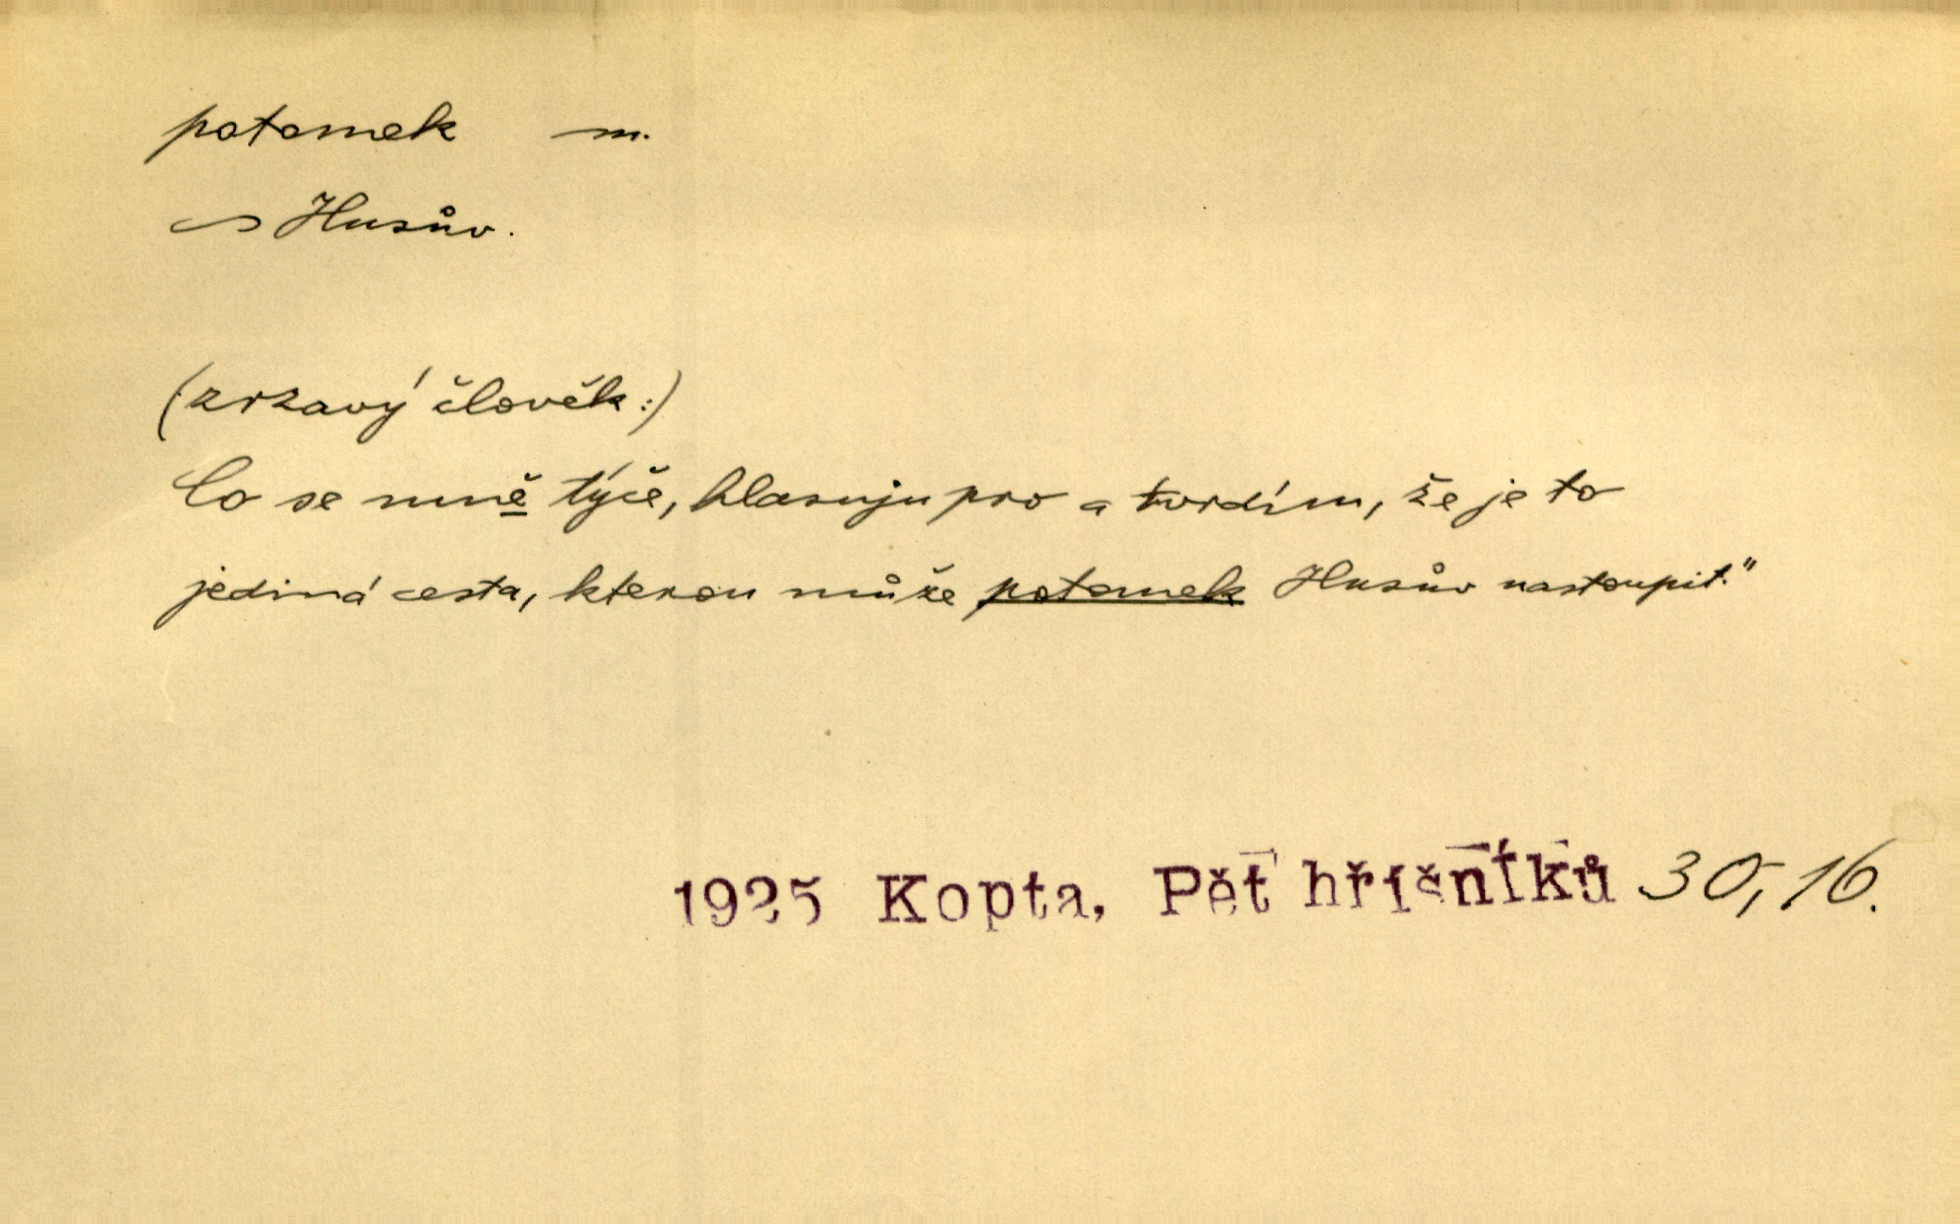 potomek m.
~ Husův.
(zrzavý člověk:)
Co se mně týče, hlasuju pro a tvrdím, že je to
jediná cesta, kterou může potomek Husův nastoupit."
1925 Kopta, Pět hříšníků 30, 16.